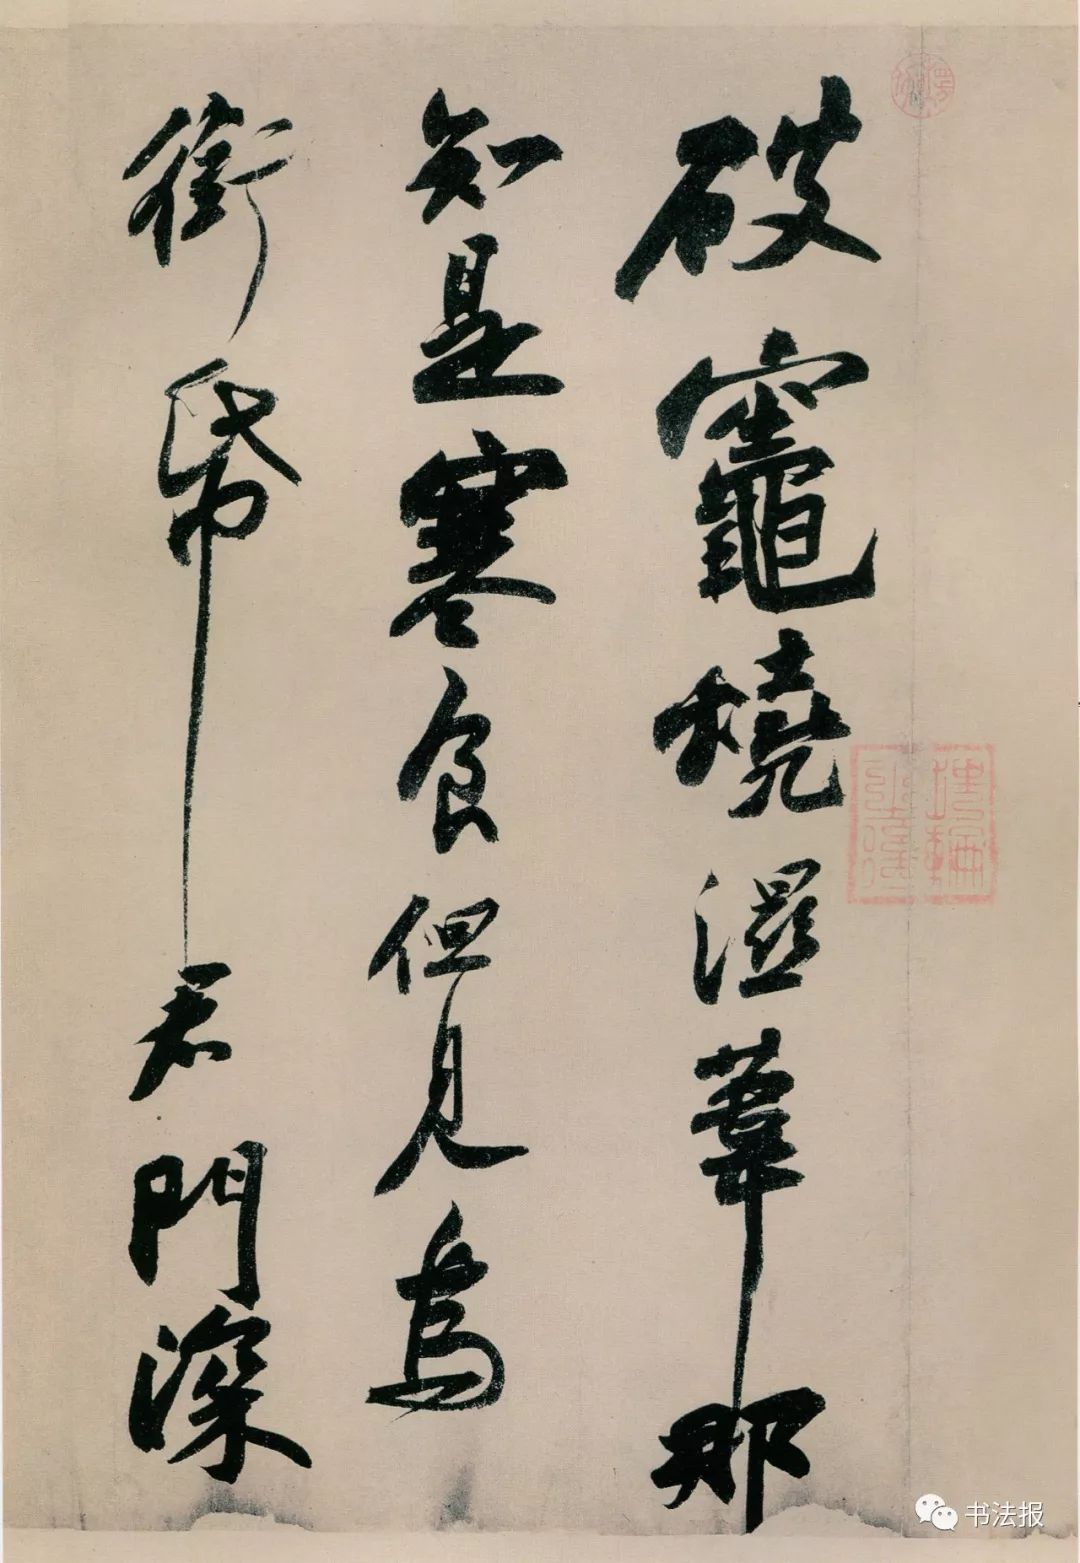 破竈燒濕葦那
知是寒食但見烏
銜帋君門深
书法报